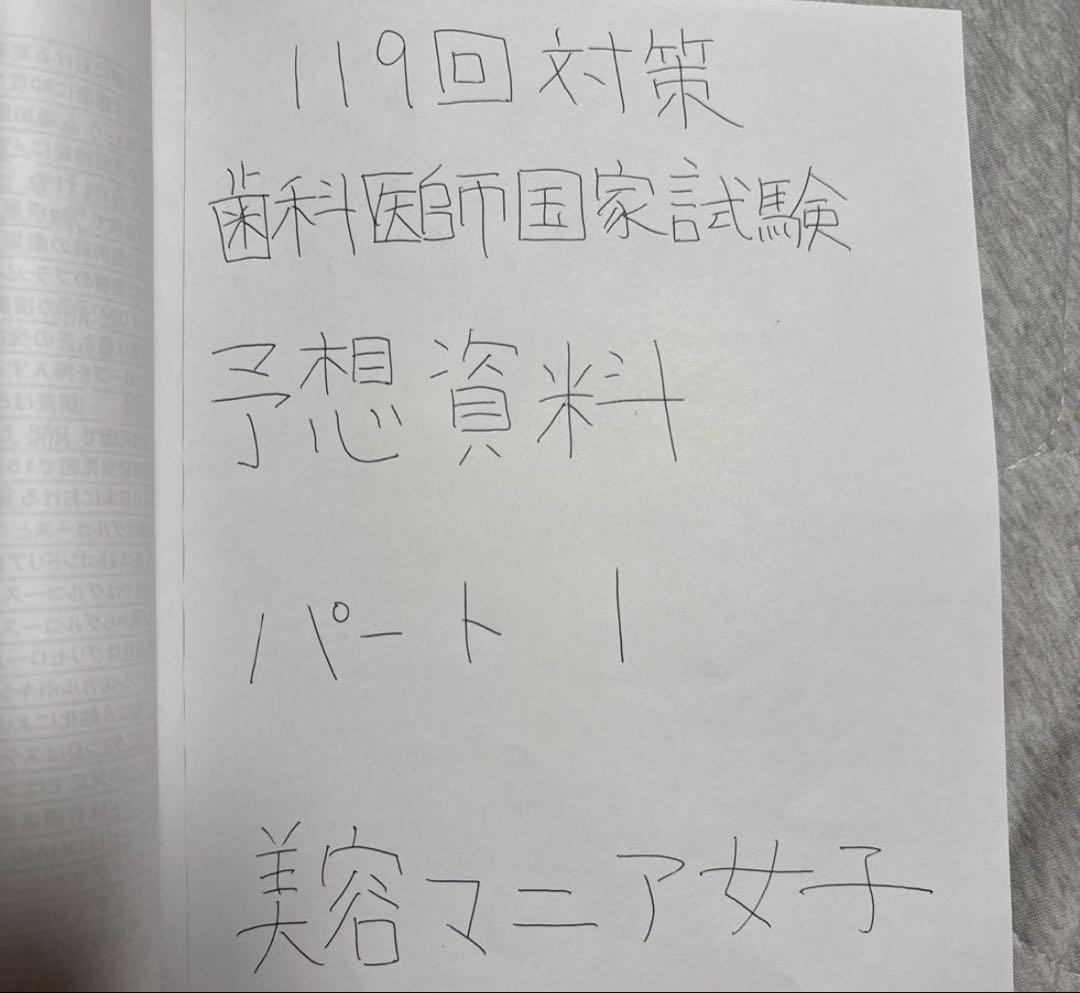 119回対策
歯科医師国家試験
予想資料
パート 1
美容マニア女子